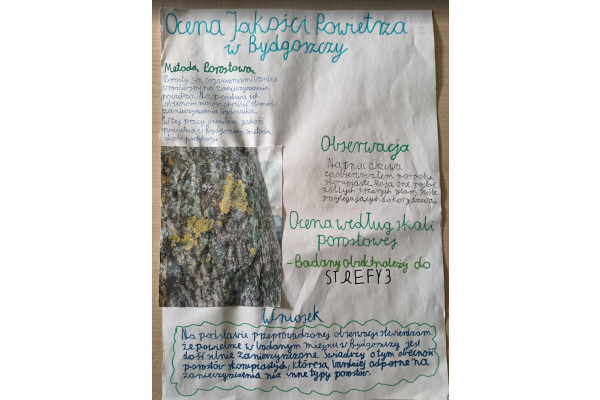 Ocena Jakości Powietrza
w Bydgoszczy
Metodą Porostową
Porosty są organizmami bardzo
wrażliwymi na zanieczyszczenia
powietrza. Na podstawie ich
obecności można określić stopień
zanieczyszczenia środowiska.
W tej pracy oceniłem jakość
powietrza w Bydgoszczy metodą
skali porostowej.
Obserwacja
Na pniu drzewa
zaobserwowałem porosty
skorupiaste. Mają one postać
żółtych i szarych plam ściśle
przylegających do kory drzewa.
Ocena według skali
porostowej
- Badany obiekt należy do
STREFY 3
Wniosek
Na podstawie przeprowadzonej obserwacji stwierdzam
że powietrze w badanym miejscu w Bydgoszczy jest
dość silnie zanieczyszczone świadczy o tym obecność
porostów skorupiastych, które są bardziej odporne na
zanieczyszczenia niż inne typy porostów.